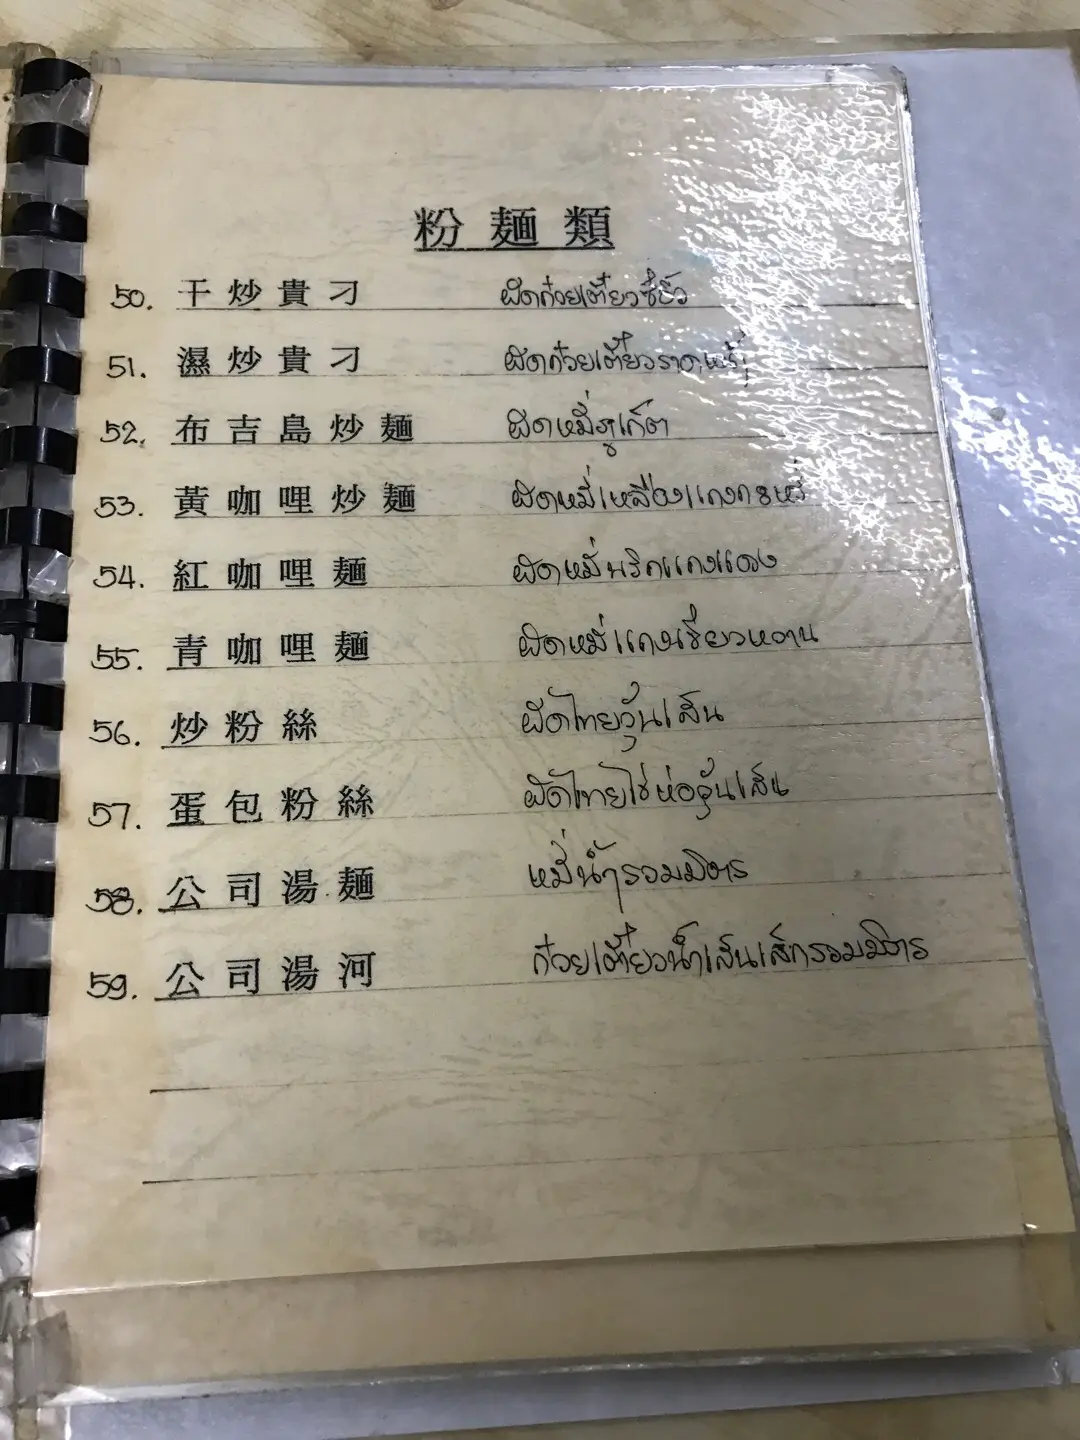 粉麵類
50. 干炒貴刁 ผัดก๋วยเตี๋ยวซีอิ๊ว
51. 濕炒貴刁 ผัดก๋วยเตี๋ยวราดหน้า
52. 布吉島炒麵 ผัดหมี่ภูเก็ต
53. 黃咖哩炒麵 ผัดหมี่เหลืองแกงกะหรี่
54. 紅咖哩麵 ผัดหมี่พริกแกงแดง
55. 青咖哩麵 ผัดหมี่แกงเขียวหวาน
56. 炒粉絲 ผัดไทยวุ้นเส้น
57. 蛋包粉絲 ผัดไทยไข่ห่อวุ้นเส้น
58. 公司湯麵 หมี่น้ำรวมมิตร
59. 公司湯河 ก๋วยเตี๋ยวน้ำเส้นเล็กรวมมิตร